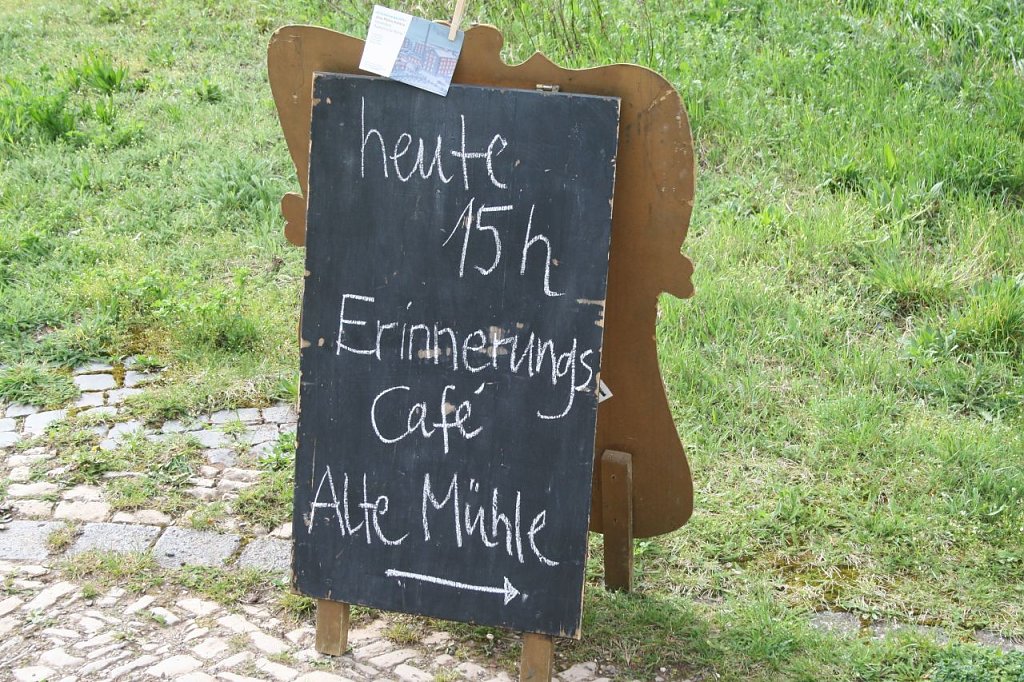 heute
15h
Erinnerungs
Café
Alte Mühle